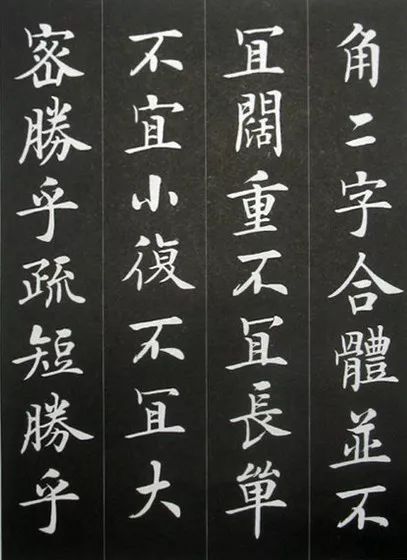 角二字合體並不
冝闊重不冝長單
不宜小復不冝大
密勝乎疏短勝乎